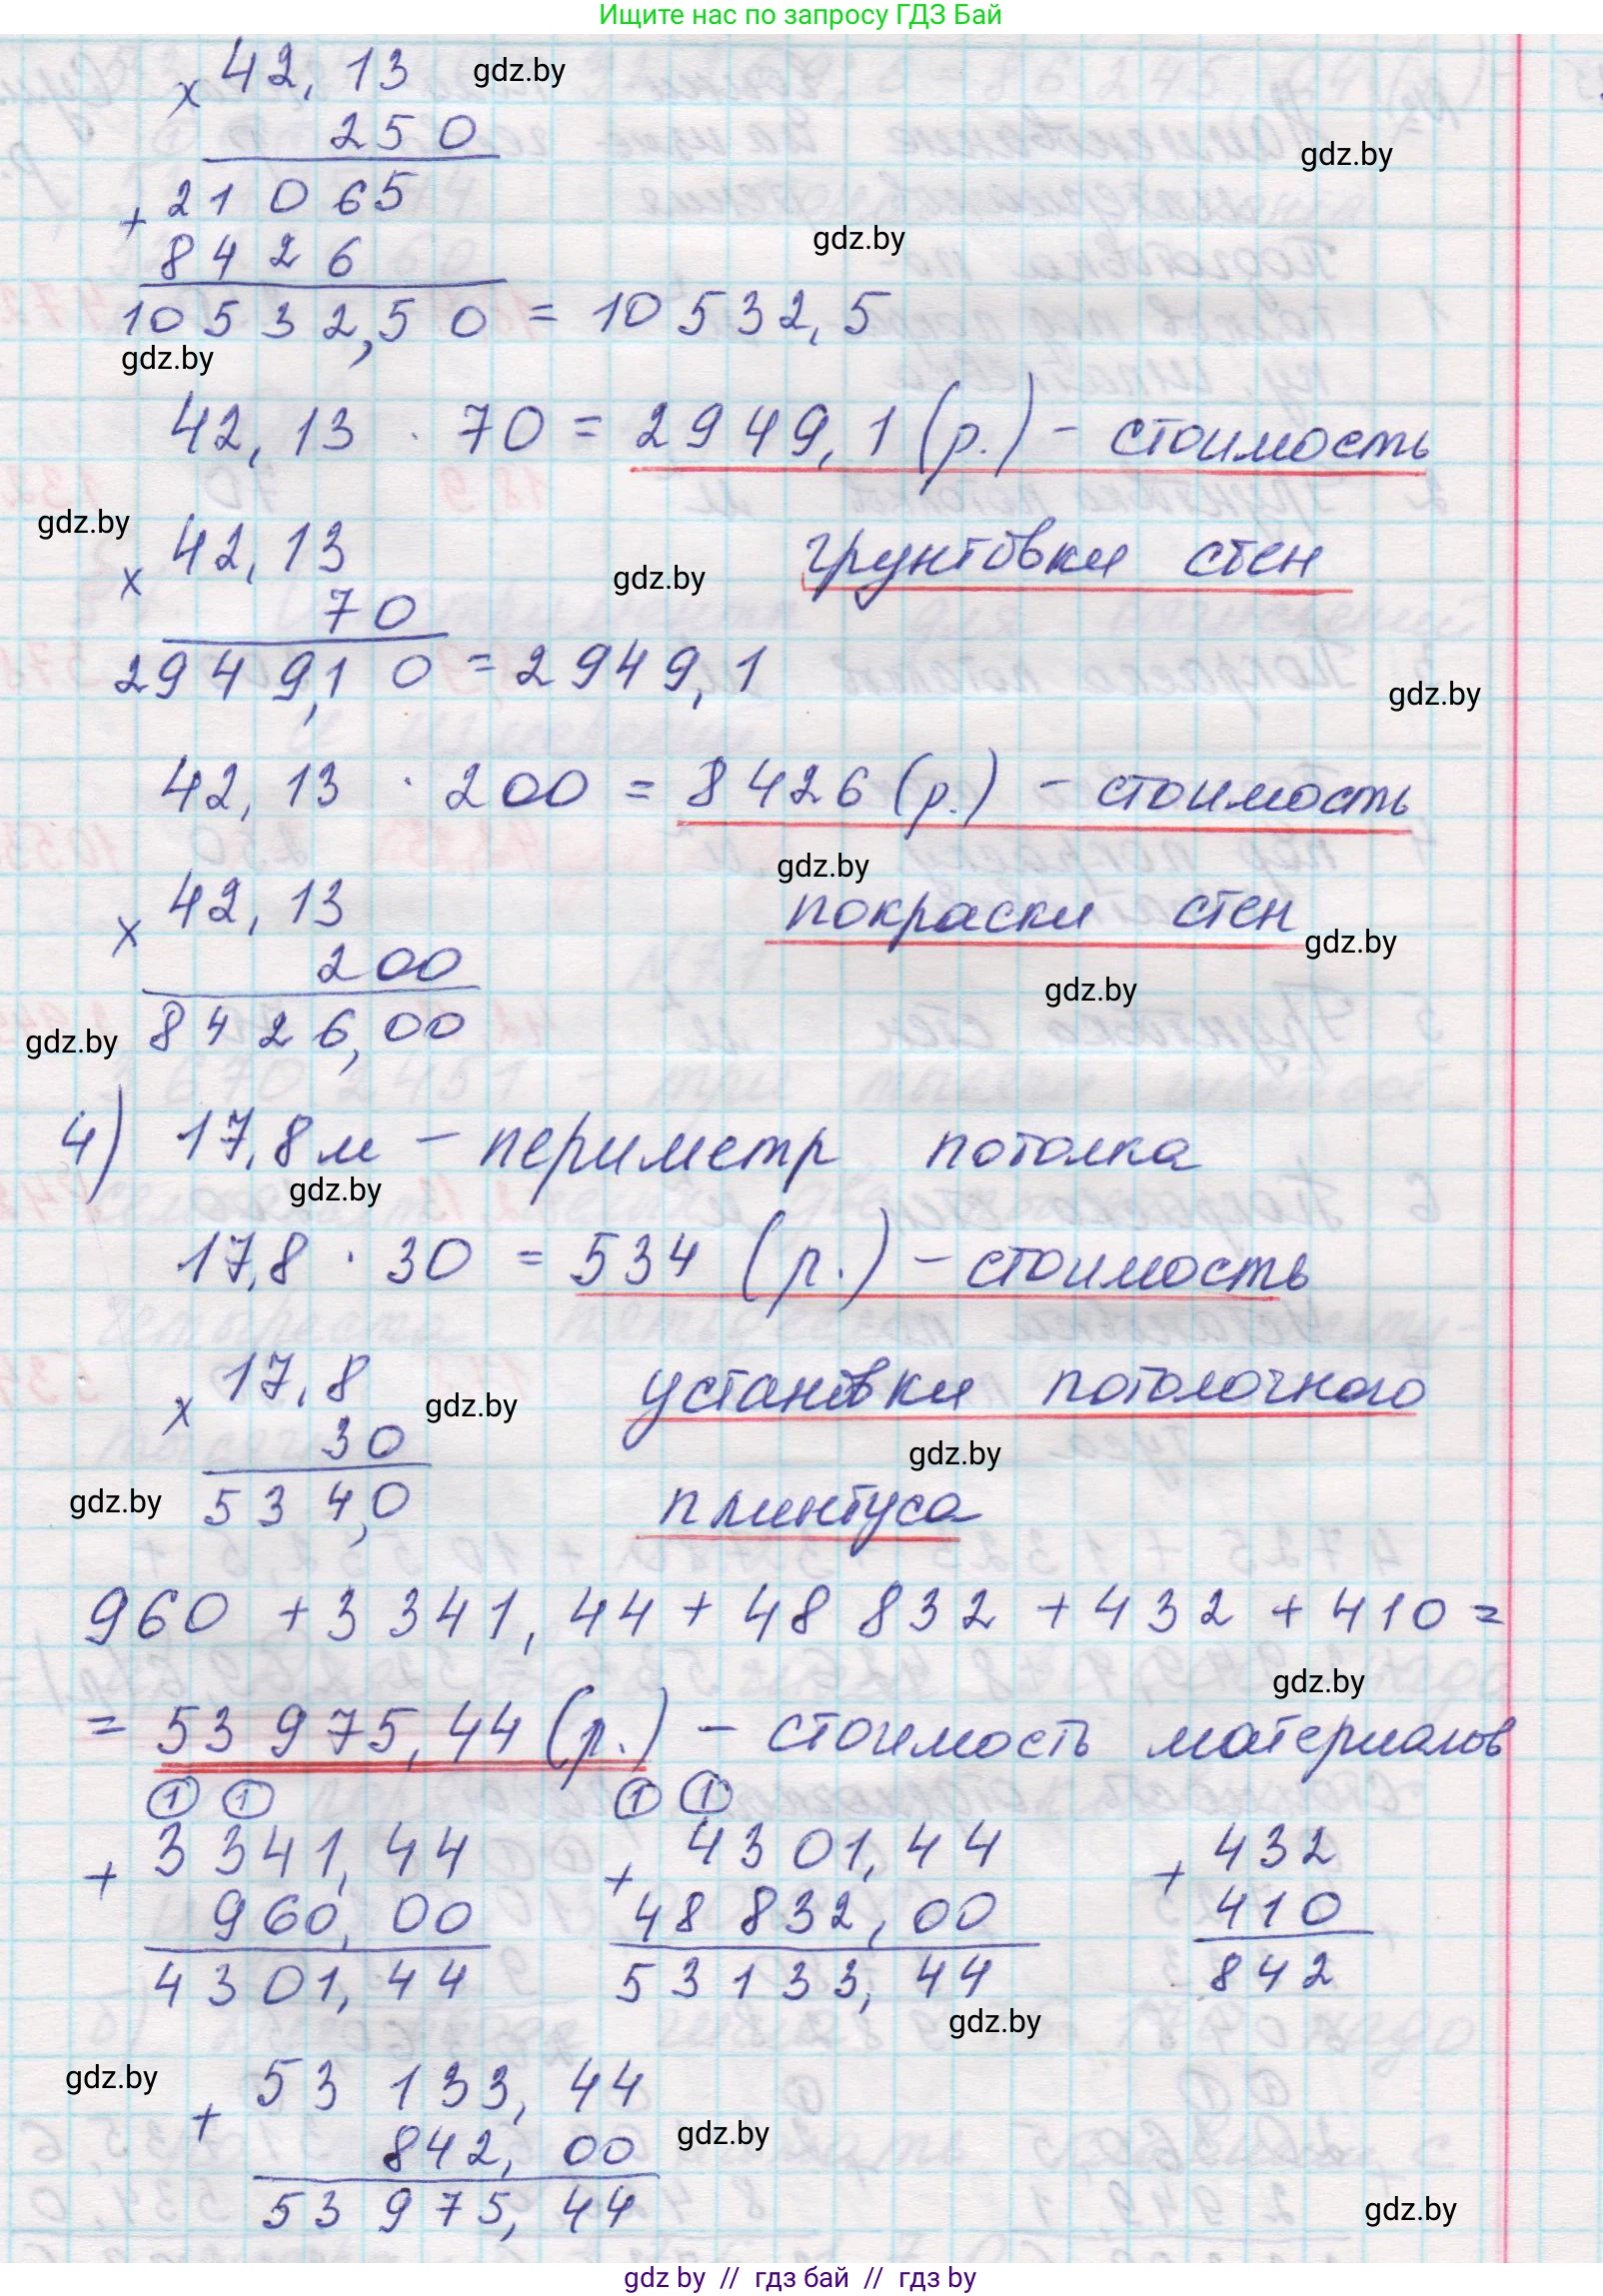 Ищите нас по запросу ГДЗ Бай
× 42,13 gdz.by
250
gdz.by
+ 21065
gdz.by
8426
10532,50 = 10532,5
gdz.by
42,13 · 70 = 2949,1 (р.) - стоимость
gdz.by
× 42,13 грунтовки стен
gdz.by
70
29 49,10 = 2949,1
gdz.by
42,13 · 200 = 8426 (р.) - стоимость
gdz.by
× 42,13 покраски стен
gdz.by
200
gdz.by
8426,00
gdz.by
4) 17,8 м - периметр потолка
gdz.by
17,8 · 30 = 534 (р.) - стоимость
× 17,8 установки потолочного
gdz.by
30
gdz.by
gdz.by
534,0 плинтуса
960 + 3 341,44 + 48 832 + 432 + 410 =
gdz.by
= 53 975,44 (р.) - стоимость материалов
1 1 1 1
+ 3 341,44 + 4301,44 + 432
960,00 48 832,00 410
4 301,44 53 133,44 842
gdz.by
gdz.by
+ 53 133,44
gdz.by
842,00
53 975,44
gdz.by
gdz by // гдз бай // гдз by